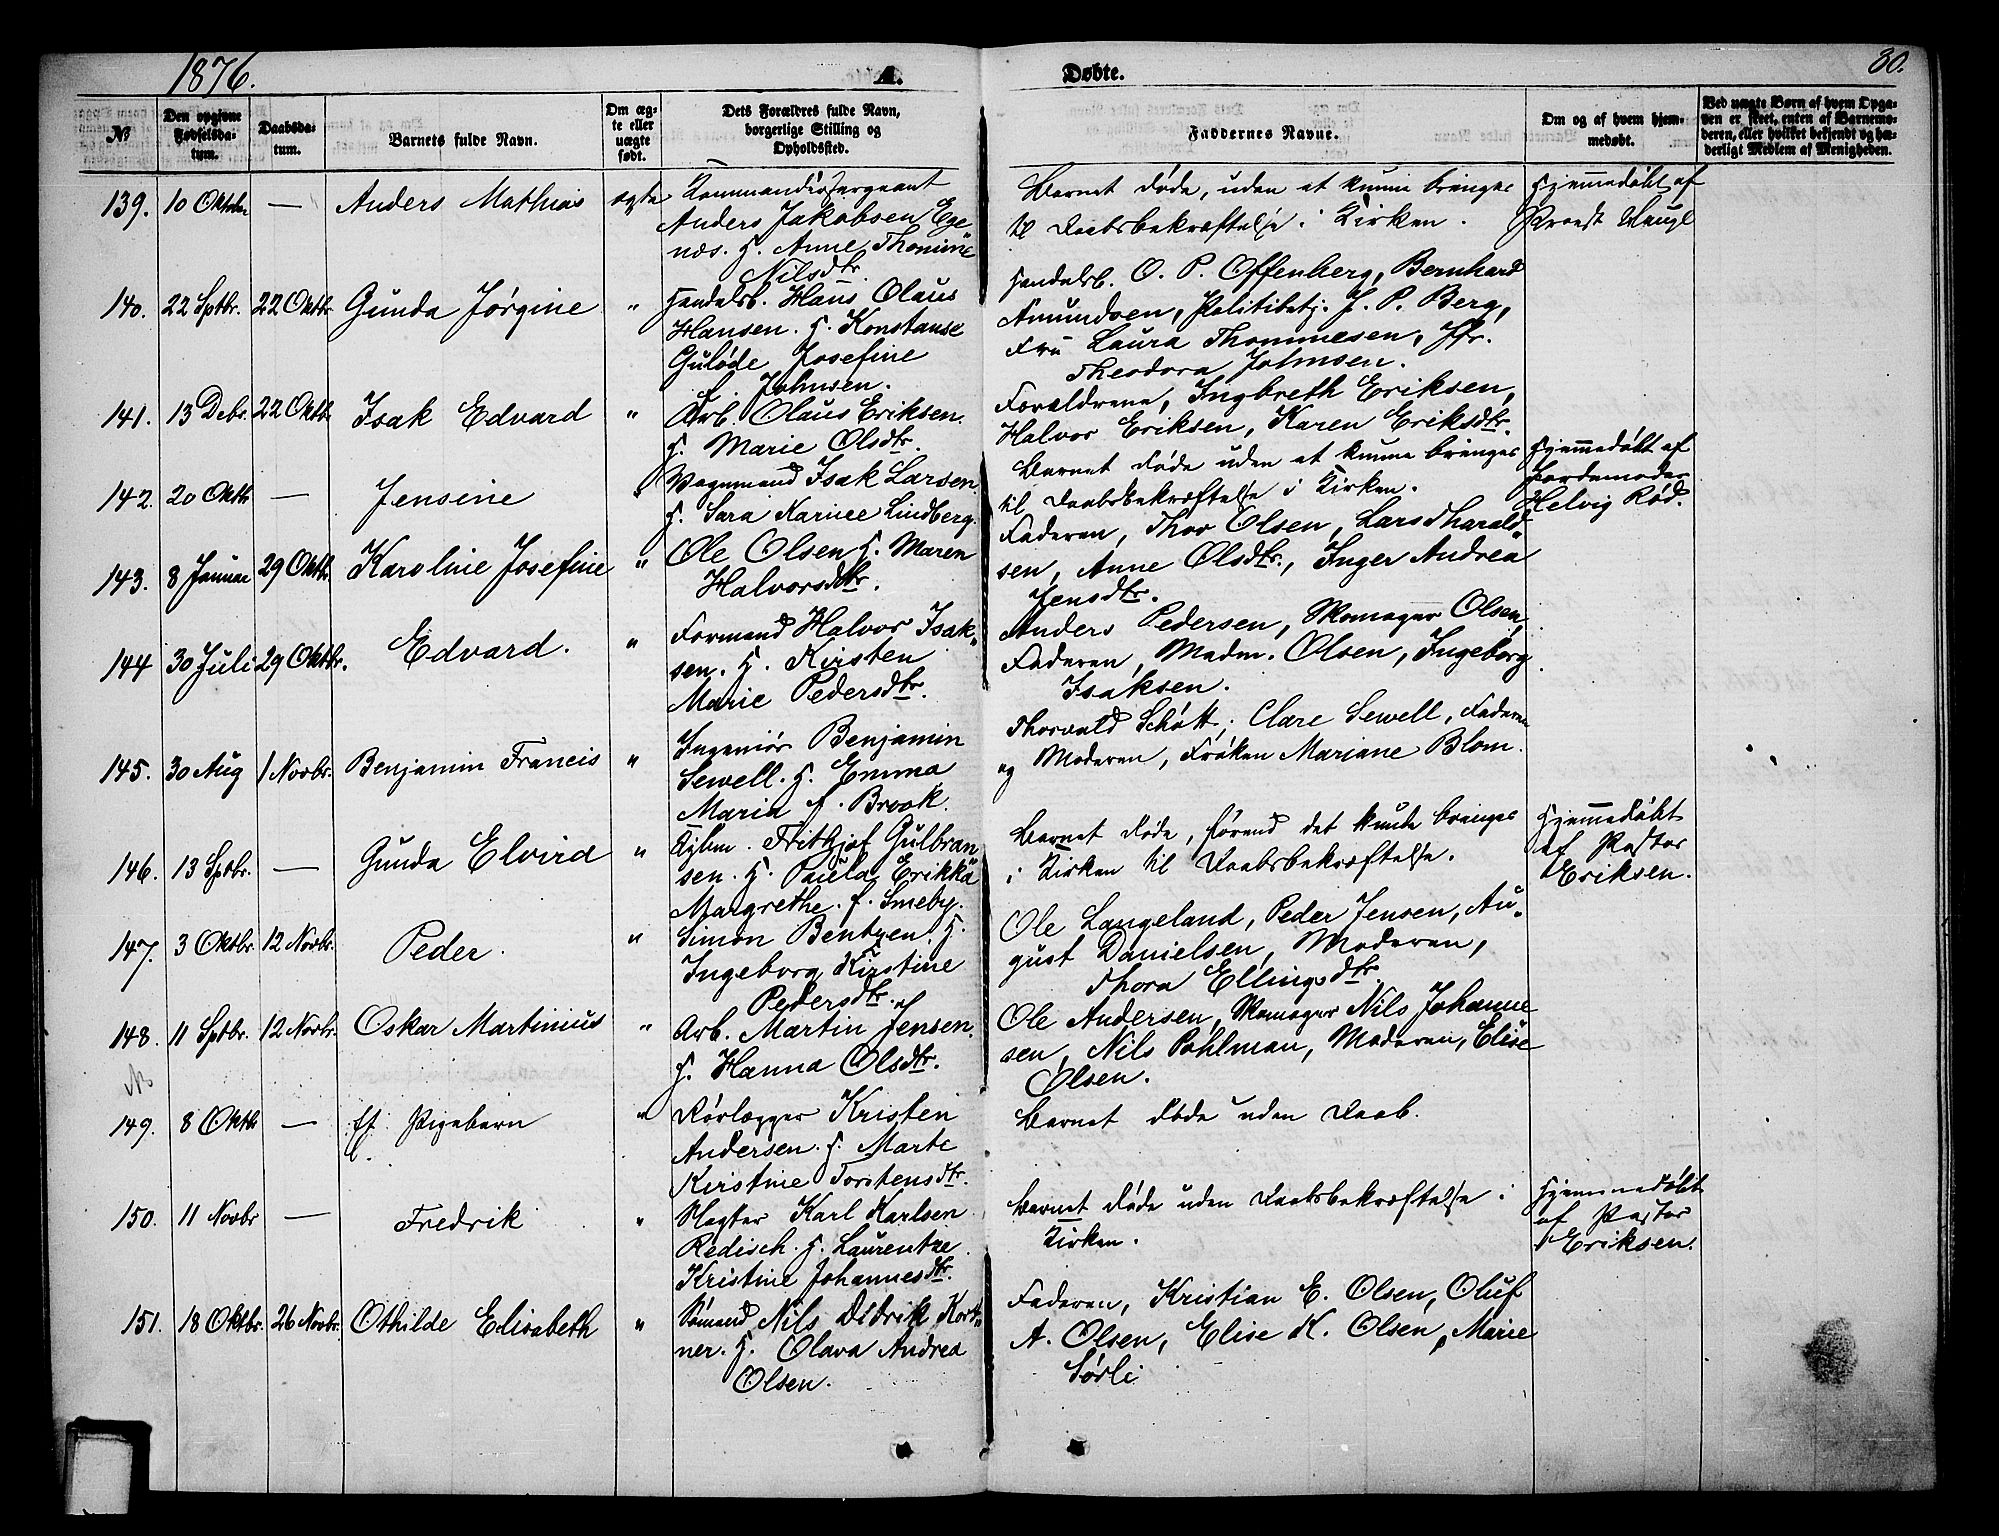 1876.
A.
Døbte.
80.
№
Den opgivne Fødselsdatum.
Daabsdatum.
Barnets fulde Navn.
Om ægte eller uægte født.
Dets Forældres fulde Navn, borgerlige Stilling og Opholdssted.
Faddernes Navne.
Om og af hvem hjemmedøbt.
Ved uægte Børn af hvem Opgaven er skeet, enten af Barnemoderen, eller hvilket bekjendt og hæderligt Medlem af Menigheden.
139. 10 Oktober — Anders Mathias ægte
Kommandérsergeant
Anders Jakobsen Ege-
næs. H. Anne Thomine
Nilsdtr.
Barnet døde, uden at kunne bringes
til Daabsbekræftelse i Kirken.
Hjemmedøbt af
Provst Hauge
140. 22 Sptbr. 22 Oktbr. Gunda Jørgine "
Handelsb. Hans Olaus
Hansen. H. Konstanse
Guløde Josefine
f. Johnsen.
Handelsb. O. P. Offenberg, Bernhard
Amundsen, Politibetj. J. P. Berg,
Fru Laura Thommesen, Jfr.
Theodora Johnsen.
141. 13 Debr. 22 Oktb. Isak Edvard "
Arb. Olaus Eriksen.
H. Marie Olsdtr.
Forældrene, Ingbreth Eriksen,
Halvor Eriksen, Karen Eriksdtr.
142. 20 Oktb. — Jensine "
Vognmand Isak Larsen.
H. Sara Karine Lindberg.
Barnet døde uden at kunne bringes
til Daabsbekræftelse i Kirken.
Hjemmedøbt af
Jordemoder
Helvig Rød.
143. 8 Januar 29 Oktb. Karoline Josefine "
Ole Olsen H. Maren
Halvorsdtr.
Faderen, Thor Olsen, Lars Tharald-
sen, Anne Olsdtr., Inger Andrea
Jensdtr.
144 30 Juli 29 Oktbr. Edvard. "
Formand Halvor Isak-
sen. H. Kirsten
Marie Pedersdtr.
Anders Pedersen, Skomager Olsen,
Faderen, Madm. Olsen, Ingeborg
Isaksen.
145. 30 Aug 1 Novbr. Benjamin Francis "
Ingeniör Benjamin
Sewell. H. Emma
Maria f. Brook.
Thorvald Schøtt, Clare Sewell, Faderen
og Moderen, Frøken Mariane Blom.
146. 13 Sptbr. — Gunda Elvira "
Frithjof Gulbran-
sen. H. Paula Erikka
Margrethe. f. Smeby.
Barnet døde, førend det kunde bringes
i Kirken til Daabsbekræftelse.
Hjemmedøbt
af Pastor
Eriksen.
147. 3 Oktbr. 12 Novbr. Peder. "
Simon Bentzen. H.
Ingeborg Kirstine
Pedersdtr.
Ole Langeland, Peder Jensen, Au-
gust Danielsen, Moderen,
Thora Ellingsdtr.
148. 11 Sptbr. 12 Novbr. Oskar Martinius "
Arb. Martin Jensen.
H. Hanna Olsdtr.
Ole Andersen, Skomager Nils Johanne
sen, Nils Pohlman, Moderen, Elise
Olsen.
149. 8 Oktb — Pigebarn "
Rørlægger Kristen
Andersen. H. Marte
Kirstine Torstensdtr.
Barnet døde uden Daab.
150. 11 Novbr — Fredrik "
Slagter Karl Karlsen
Redisch. H. Laurentze
Kristine Johannesdtr.
Barnet døde uden Daabsbekræftelse i
Kirken.
Hjemmedøbt
af Pastor
Eriksen.
151. 18 Oktbr. 26 Novbr. Othilde Elisabeth "
Sømand Nils Didrik Kort-
ner. H. Olava Andrea
Olsen.
Faderen, Kristian E. Olsen, Oluf
A. Olsen, Elise K. Olsen, Marie
Sørli